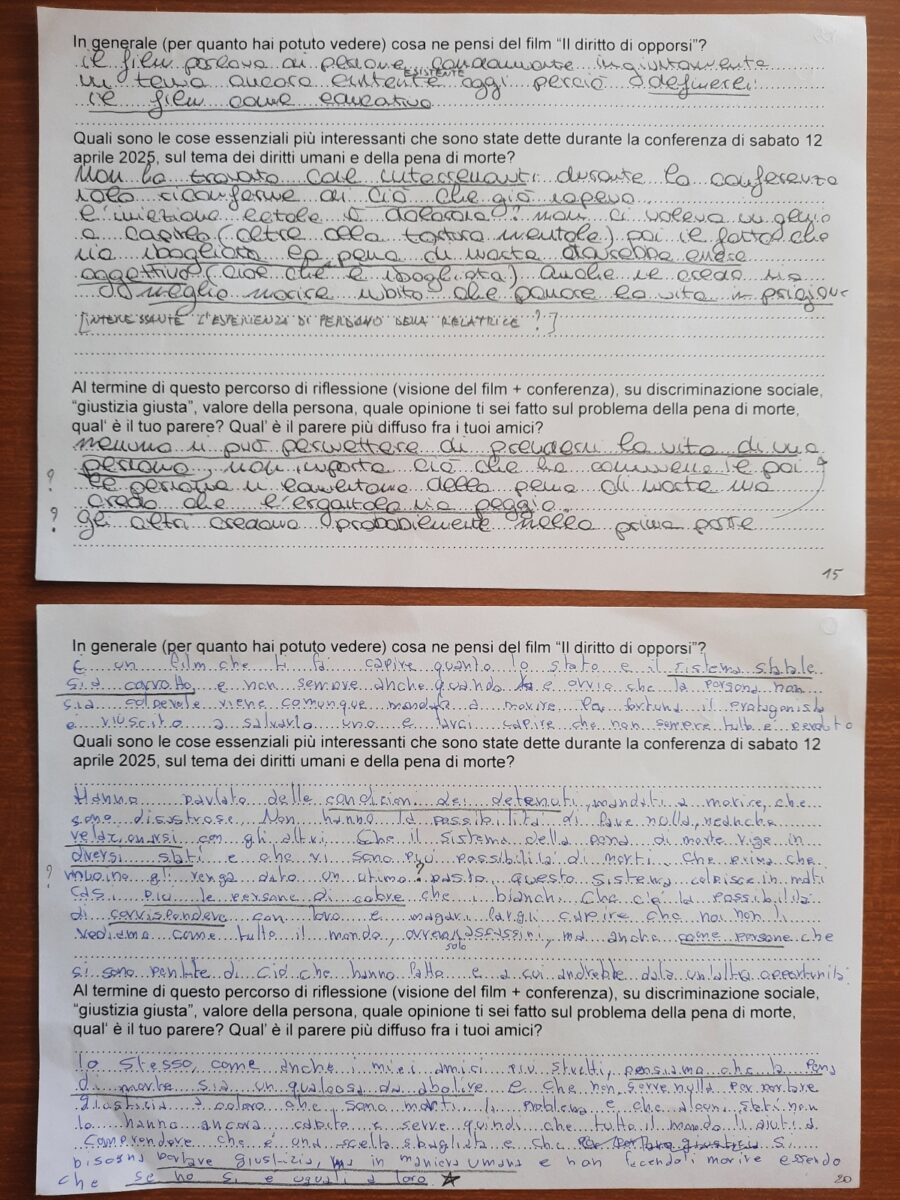 In generale (per quanto hai potuto vedere) cosa ne pensi del film “Il diritto di opporsi”?
il film parlava di persone condannate ingiustamente
un tema ancora esistente ESISTENTE oggi perciò definirei
il film come educativo
Quali sono le cose essenziali più interessanti che sono state dette durante la conferenza di sabato 12
aprile 2025, sul tema dei diritti umani e della pena di morte?
Non ho trovato cose interessanti durante la conferenza
solo riconferme di ciò che già sapevo.
l'iniezione letale è dolorosa? non ci voleva un genio
a capirlo (oltre alla tortura mentale) poi il fatto che
sia sbagliata la pena di morte dovrebbe essere
oggettivo (cioè che è sbagliata) Anche se credo sia
meglio morire subito che passare la vita in prigione
[INTERESSANTE L'ESPERIENZA DI PERDONO DELLA RELATRICE?]
Al termine di questo percorso di riflessione (visione del film + conferenza), su discriminazione sociale,
“giustizia giusta”, valore della persona, quale opinione ti sei fatto sul problema della pena di morte,
qual' è il tuo parere? Qual' è il parere più diffuso fra i tuoi amici?
nessuno si può permettere di prendersi la vita di una
persona, non importa ciò che ha commesso poi
? le persone si lamentano della pena di morte ma
credo che l'ergastolo sia peggio.
? gli altri credono probabilmente nella prima parte
15
In generale (per quanto hai potuto vedere) cosa ne pensi del film “Il diritto di opporsi”?
È un film che ti fa capire quanto lo stato e il sistema statale
sia corrotto, e non sempre anche quando è ovvio che la persona non
sia colpevole viene comunque mandata a morire. Per fortuna il protagonista
è riuscito a salvarlo uno e farci capire che non sempre tutto è perduto
Quali sono le cose essenziali più interessanti che sono state dette durante la conferenza di sabato 12
aprile 2025, sul tema dei diritti umani e della pena di morte?
Hanno parlato delle condizioni dei detenuti, mandati a morire, che
sono disastrose. Non hanno la possibilità di fare nulla, neanche
relazionarsi con gli altri. Che il sistema della pena di morte vige in
diversi stati e che vi sono più possibilità di morti. Che prima che
? muoino gli venga dato un ultimo ? pasto, questo sistema colpisce in molti
casi più le persone di colore che i bianchi. Che c'è la possibilità
di corrispondere con loro e magari fargli capire che noi non li
vediamo come tutto il mondo, ovvero assassini, ma anche come persone che
solo
si sono pentite di ciò che hanno fatto e a cui andrebbe data un'altra opportunità
Al termine di questo percorso di riflessione (visione del film + conferenza), su discriminazione sociale,
“giustizia giusta”, valore della persona, quale opinione ti sei fatto sul problema della pena di morte,
qual' è il tuo parere? Qual' è il parere più diffuso fra i tuoi amici?
Io stesso, come anche i miei amici più stretti, pensiamo che la pena
di morte sia un qualcosa da abolire e che non serve nulla per portare
giustizia a coloro che sono morti. Il problema è che alcuni stati non
lo hanno ancora capito e serve quindi che tutto il mondo li aiuti a
comprendere che è una scelta sbagliata e che si
bisogna portare giustizia, ma in maniera umana e non facendoli morire essendo
che se no si è uguali a loro ☆
20